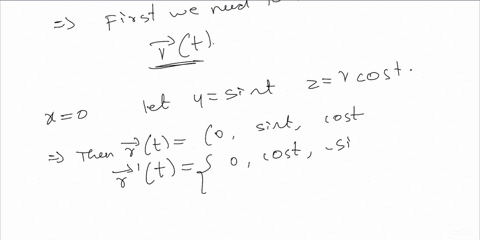 ⇒ First we need
r⃗(t).
x=0 let y=sint z=rcost.
⇒ Then r⃗(t)= (0, sint, cost
r⃗'(t)= { 0, cost, -si